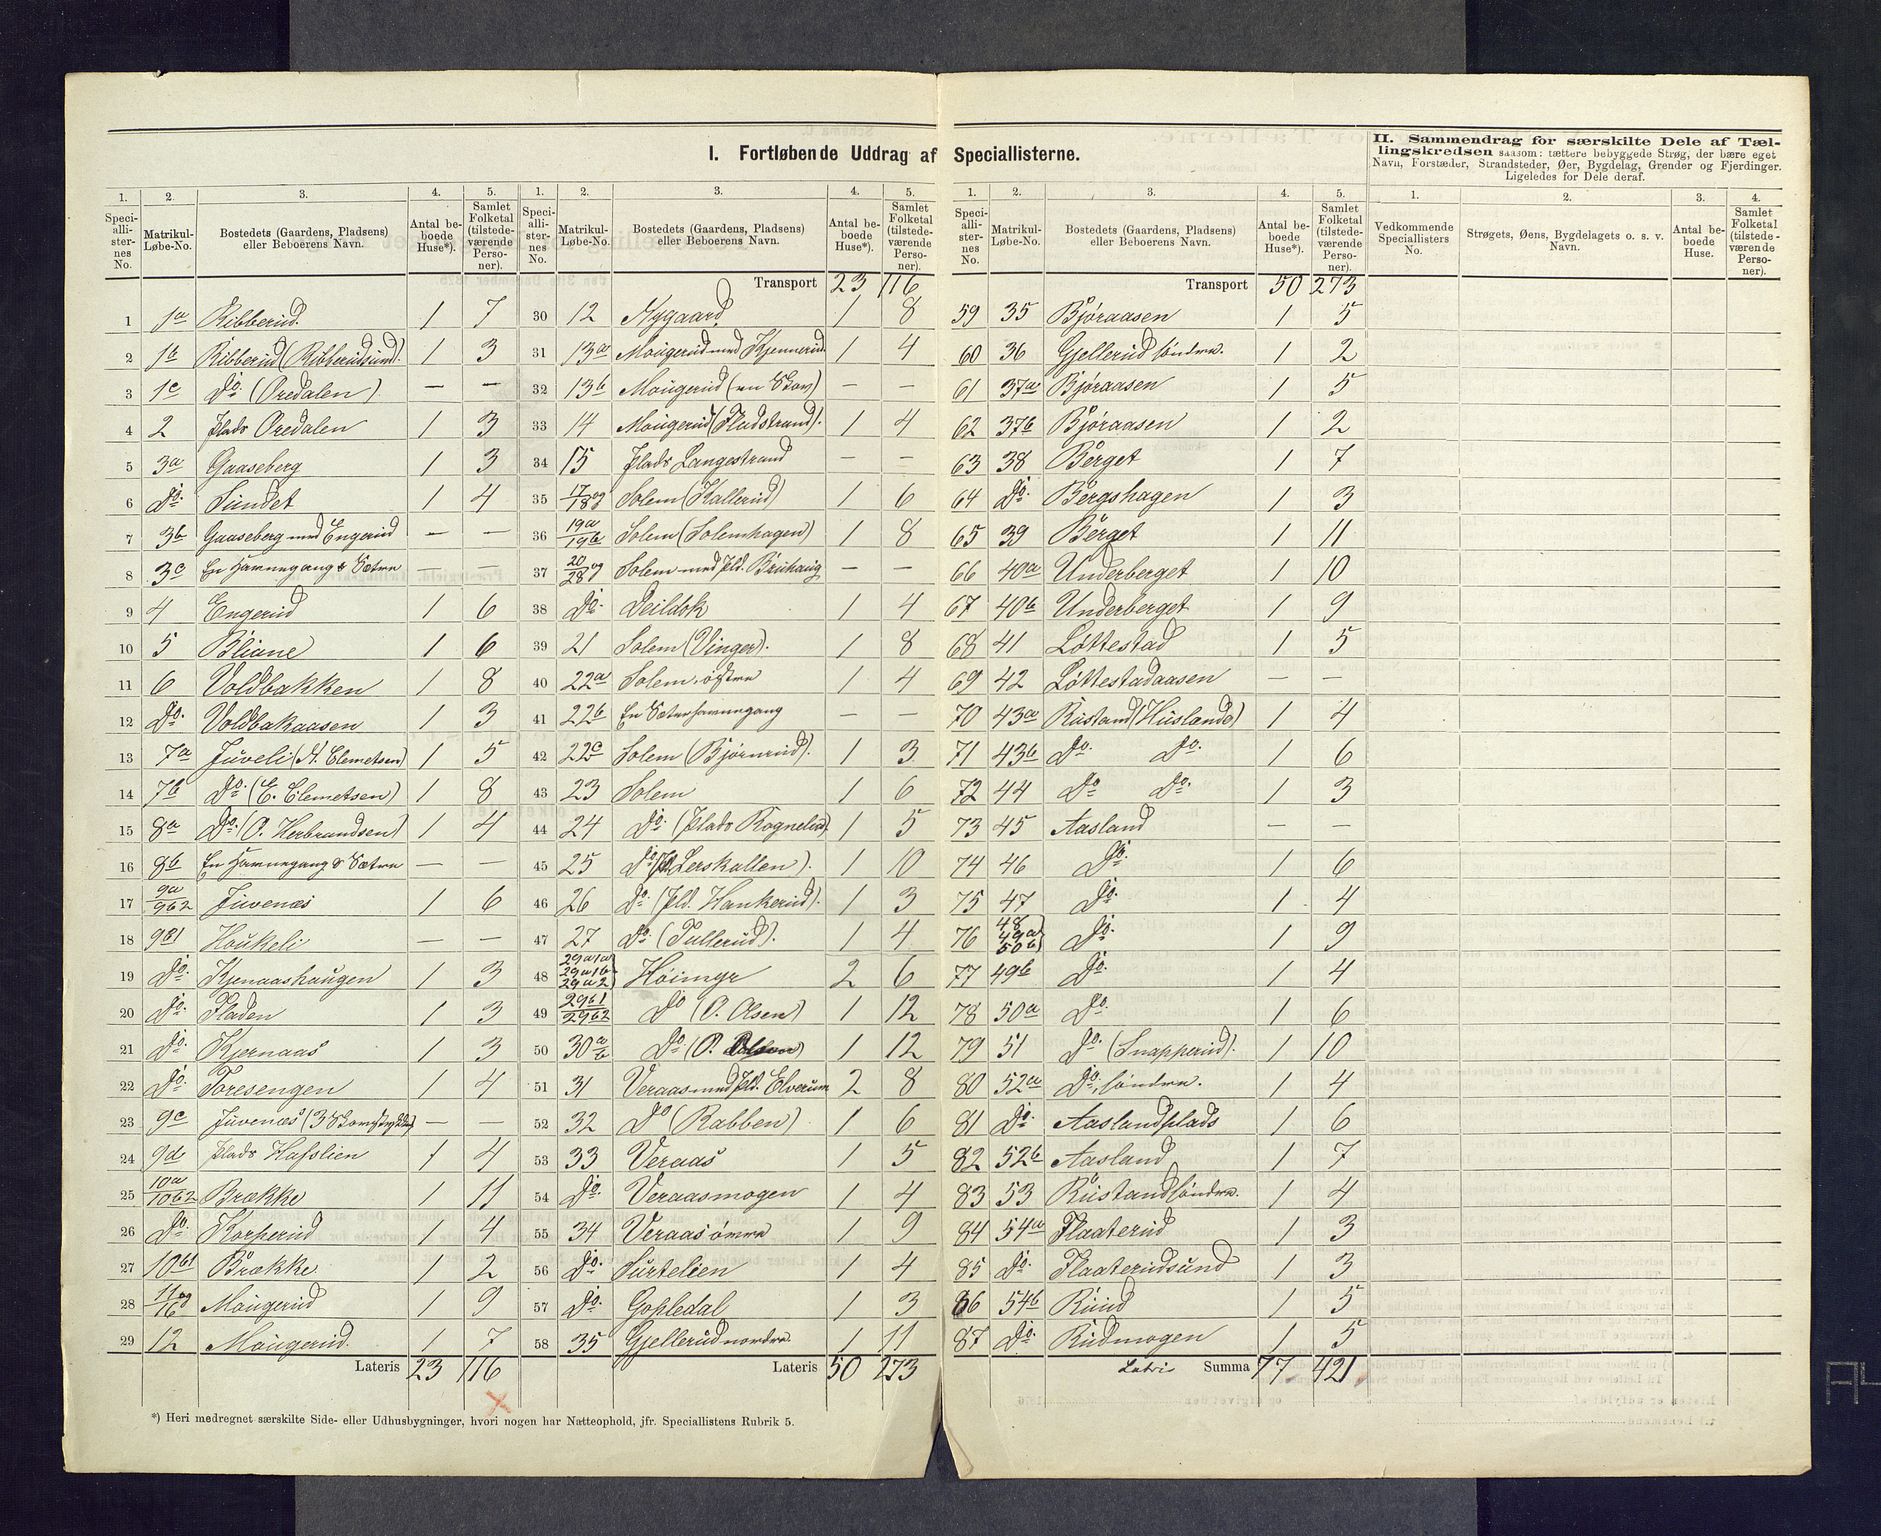 I. Fortløbende Uddrag af Speciallisterne.
II. Sammendrag for særskilte Dele af Tællingskredsen saasom: tættere bebyggede Strøg, der bære eget
Navn, Forstæder, Strandsteder, Øer, Bygdelag, Grender og Fjerdinger.
Ligeledes for Dele deraf.
1. 2. 3. 4. 5.
Speciallisternes No. Matrikul-Løbe-No. Bostedets (Gaardens, Pladsens) eller Beboerens Navn. Antal beboede Huse*). Samlet Folketal (tilstedeværende Personer).
1 1a Ribberud. 1 7
2 1b Ribberud (Ribberudsund). 1 3
3 1c Do. (Oredalen). — —
4 2 plads Oredalen 1 3
5 3a Gaaseberg 1 3
6 Do. Sundet 1 4
7 3b Gaaseberg med Engerud — —
8 3c En Havnegang & Sætre — —
9 4 Engerud 1 6
10 5 Bliune 1 6
11 6 Voldbakken 1 8
12 Do. Voldbakaasen 1 3
13 7a Juveli (A. Clemetsen) 1 5
14 7b Do. (E. Clemetsen) 1 8
15 8a Do. (O. Herbrandsen) 1 4
16 8b En Havnegang & Sætre — —
17 9a/9b2 Juvenæs 1 6
18 9b1 Houkeli — —
19 Do. Kjenaashaugen 1 3
20 Do. Fladen 1 3
21 Do. Kjernaas 1 3
22 Do. Toresengen 1 4
23 9c Juvenæs (3 Skovstykker) — —
24 9d plads Hafslien 1 4
25 10a/10b2 Brække 1 11
26 Do. Korperud 1 4
27 10b1 Brække 1 2
28 11og/16 Mougerud 1 9
29 12 Mougerud. 1 7
Lateris 23 116
1. 2. 3. 4. 5.
Speciallisternes No. Matrikul-Løbe-No. Bostedets (Gaardens, Pladsens) eller Beboerens Navn. Antal beboede Huse*). Samlet Folketal (tilstedeværende Personer).
Transport 23 116
30 12 Nygaard 1 8
31 13a Mougerud med Kjennerud 1 4
32 13b Mougerud (en Skov) — —
33 14 Mougerud (Fladstrand). 1 4
34 15 plads Langestrand — —
35 17og/18 Solem (Kallerud) 1 6
36 19a/19b Solem (Solemhagen) 1 8
37 20og/28 Solem med pld. Brihaug — —
38 Do. Deildok 1 4
39 21 Solem (Vinger). 1 8
40 22a Solem, østre 1 4
41 22b En Sæterhavnegang — —
42 22c Solem (Bjørnrud). 1 3
43 23 Solem 1 6
44 24 Do. (plads Rognelid). 1 5
45 25 Do. (pl. Lerskallen). 1 10
46 26 Do. (pld. Hankerud). 1 3
47 27 Do. (Tullerud). 1 4
48 29a1a 29a1b 29a2 Høimyr 2 6
49 29b1/29b2 Do (O. Olsen) 1 12
50 30a/b Do. (P. ) 1 12
51 31 Veraas med pld. Elverum 2 8
52 32 Do (Rabben) 1 6
53 33 Veraas 1 5
54 Do. Veraasmogen 1 4
55 34 Veraas øvre 1 9
56 Do. Surtelien 1 4
57 Do. Gopledal 1 3
58 35 Gjellerud nordre 1 11
Lateris 50 273
1. 2. 3. 4. 5.
Speciallisternes No. Matrikul-Løbe-No. Bostedets (Gaardens, Pladsens) eller Beboerens Navn. Antal beboede Huse*). Samlet Folketal (tilstedeværende Personer).
Transport 50 273
59 35 Bjøraasen 1 5
60 36 Gjellerud søndre. 1 2
61 37a Bjøraasen 1 5
62 37b Bjøraasen 1 2
63 38 Berget 1 7
64 Do. Bergshagen 1 3
65 39 Berget 1 11
66 40a Underberget 1 10
67 40b Underberget 1 9
68 41 Løttestad 1 5
69 42 Løttestadaasen — —
70 43a Rustand (Huslande) 1 4
71 43b Do. Do. 1 6
72 44 Do Do. 1 3
73 45 Aasland — —
74 46 Do. 1 6
75 47 Do. 1 4
76 48 49a 50b Do. 1 9
77 49b Do. 1 4
78 50a Do. 1 6
79 51 Do. (Snapperud). 1 10
80 52a Do., søndre. 1 4
81 Do. Aaslandplads 1 6
82 52b Aasland 1 7
83 53 Rustand søndre. 1 4
84 54a Flaaterud 1 3
85 Do. Flaaterudsund 1 3
86 54b Ruud 1 5
87 Do. Rudmogen 1 5
Latris Summa 77 421
1. 2. 3. 4.
Vedkommende Speciallisters No. Strøgets, Øens, Bygdelagets o. s. v. Navn. Antal beboede Huse. Samlet Folketal (tilstedeværende Personer).
*) Heri medregnet særskilte Side- eller Udhusbygninger, hvori nogen har Natteophold, jfr. Speciallistens Rubrik 5.